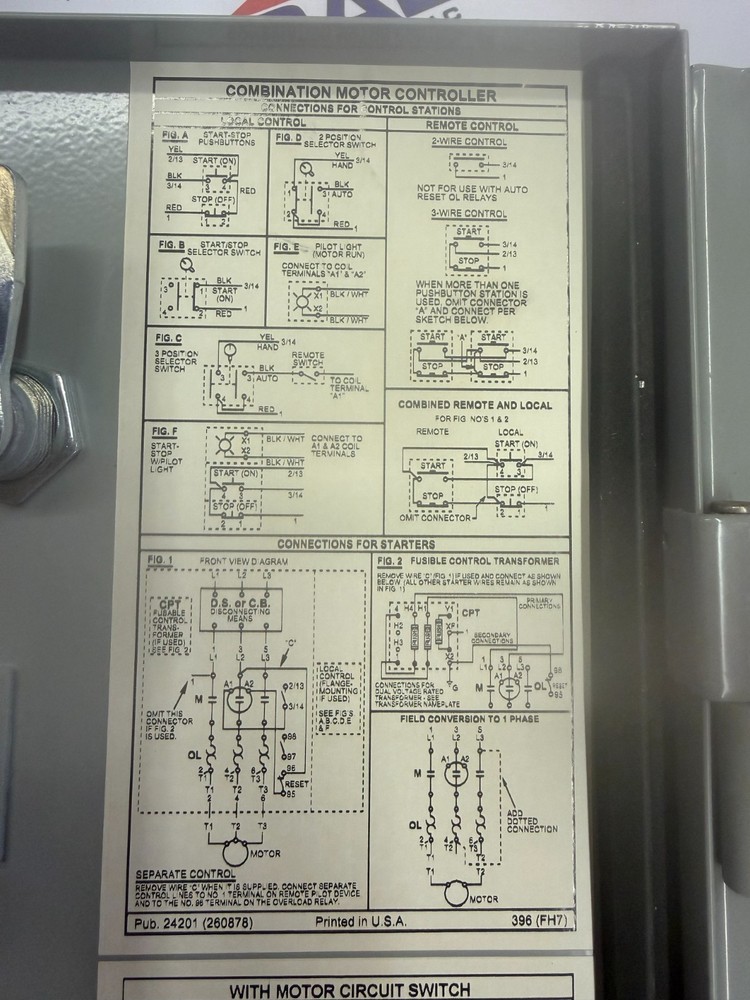 COMBINATION MOTOR CONTROLLER
CONNECTIONS FOR CONTROL STATIONS
LOCAL CONTROL
FIG. A
START-STOP
PUSHBUTTONS
YEL
2/13
START (ON)
BLK
3/14
3 4
RED
STOP (OFF)
RED
1
1 2
FIG. D
2 POSITION
SELECTOR SWITCH
YEL
HAND
3/14
1
3
BLK
AUTO
2
4
RED
1
FIG. B
START/STOP
SELECTOR SWITCH
3
1
BLK
3/14
START
(ON)
4
2
RED
1
FIG. E
PILOT LIGHT
(MOTOR RUN)
CONNECT TO COIL
TERMINALS "A1" & "A2"
X1
BLK / WHT
X2
BLK / WHT
FIG. C
3 POSITION
SELECTOR
SWITCH
YEL
HAND
3/14
REMOTE
SWITCH
3
BLK
AUTO
TO COIL
TERMINAL
"A1"
4
RED
1
FIG. F
START-
STOP
W/PILOT
LIGHT
X1
BLK / WHT
X2
BLK / WHT
CONNECT TO
A1 & A2 COIL
TERMINALS
START (ON)
2/13
4 3
3/14
STOP (OFF)
2 1
1
REMOTE CONTROL
2-WIRE CONTROL
3/14
1
NOT FOR USE WITH AUTO
RESET OL RELAYS
3-WIRE CONTROL
START
3/14
2/13
STOP
1
WHEN MORE THAN ONE
PUSHBUTTON STATION IS
USED, OMIT CONNECTOR
"A" AND CONNECT PER
SKETCH BELOW.
START
"A"
START
3/14
2/13
STOP
STOP
1
COMBINED REMOTE AND LOCAL
FOR FIG NO'S 1 & 2
REMOTE
LOCAL
START (ON)
2/13
3/14
START
4 3
STOP (OFF)
STOP
1
2 1
OMIT CONNECTOR
CONNECTIONS FOR STARTERS
FIG. 1
FRONT VIEW DIAGRAM
L1 L2 L3
CPT
FUSABLE
CONTROL
TRANS-
FORMER
(IF USED)
SEE FIG 2
D.S. or C.B.
DISCONNECTING
MEANS
1 3 5
L1 L2 L3
"C"
1
M
A1
A2
2/13
3/14
OMIT THIS
CONNECTOR
IF FIG. 2
IS USED.
LOCAL
CONTROL
(FLANGE-
MOUNTING
IF USED)
SEE FIG'S
A,B,C,D,E
& F
98
97
OL
96
RESET
95
2 4 6
T1 T2 T3
T1 T2 T3
2 4 6
T1 T2 T3
MOTOR
SEPARATE CONTROL
REMOVE WIRE "C" WHEN IT IS SUPPLIED. CONNECT SEPARATE
CONTROL LINES TO NO. 1 TERMINAL ON REMOTE PILOT DEVICE
AND TO THE NO. 96 TERMINAL ON THE OVERLOAD RELAY.
FIG. 2 FUSIBLE CONTROL TRANSFORMER
REMOVE WIRE "C" (FIG. 1) IF USED AND CONNECT AS SHOWN
BELOW (ALL OTHER STARTER WIRES REMAIN AS SHOWN
IN FIG 1)
PRIMARY
CONNECTIONS
H4 H1
CPT
H2
H3
XF
X2
SECONDARY
CONNECTIONS
G
CONNECTIONS FOR
DUAL VOLTAGE RATED
TRANSFORMER - SEE
TRANSFORMER NAMEPLATE
1 3 5
L1 L2 L3
M
A1 A2
OL
96
RESET
95
FIELD CONVERSION TO 1 PHASE
1 3 5
L1 L2 L3
A1 A2
M
OL
ADD
DOTTED
CONNECTION
2 4 6
T1 T2 T3
T1 T2
T1 T2
MOTOR
Pub. 24201 (260878)
Printed in U.S.A.
396 (FH7)
WITH MOTOR CIRCUIT SWITCH